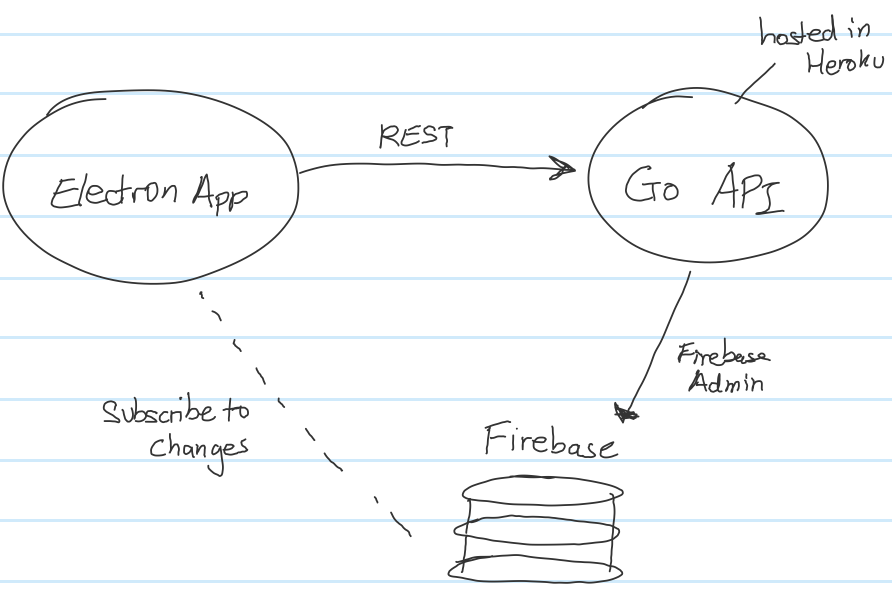 hosted in
Heroku
REST
Electron App
Go API
Firebase
Admin
Subscribe to
changes
Firebase